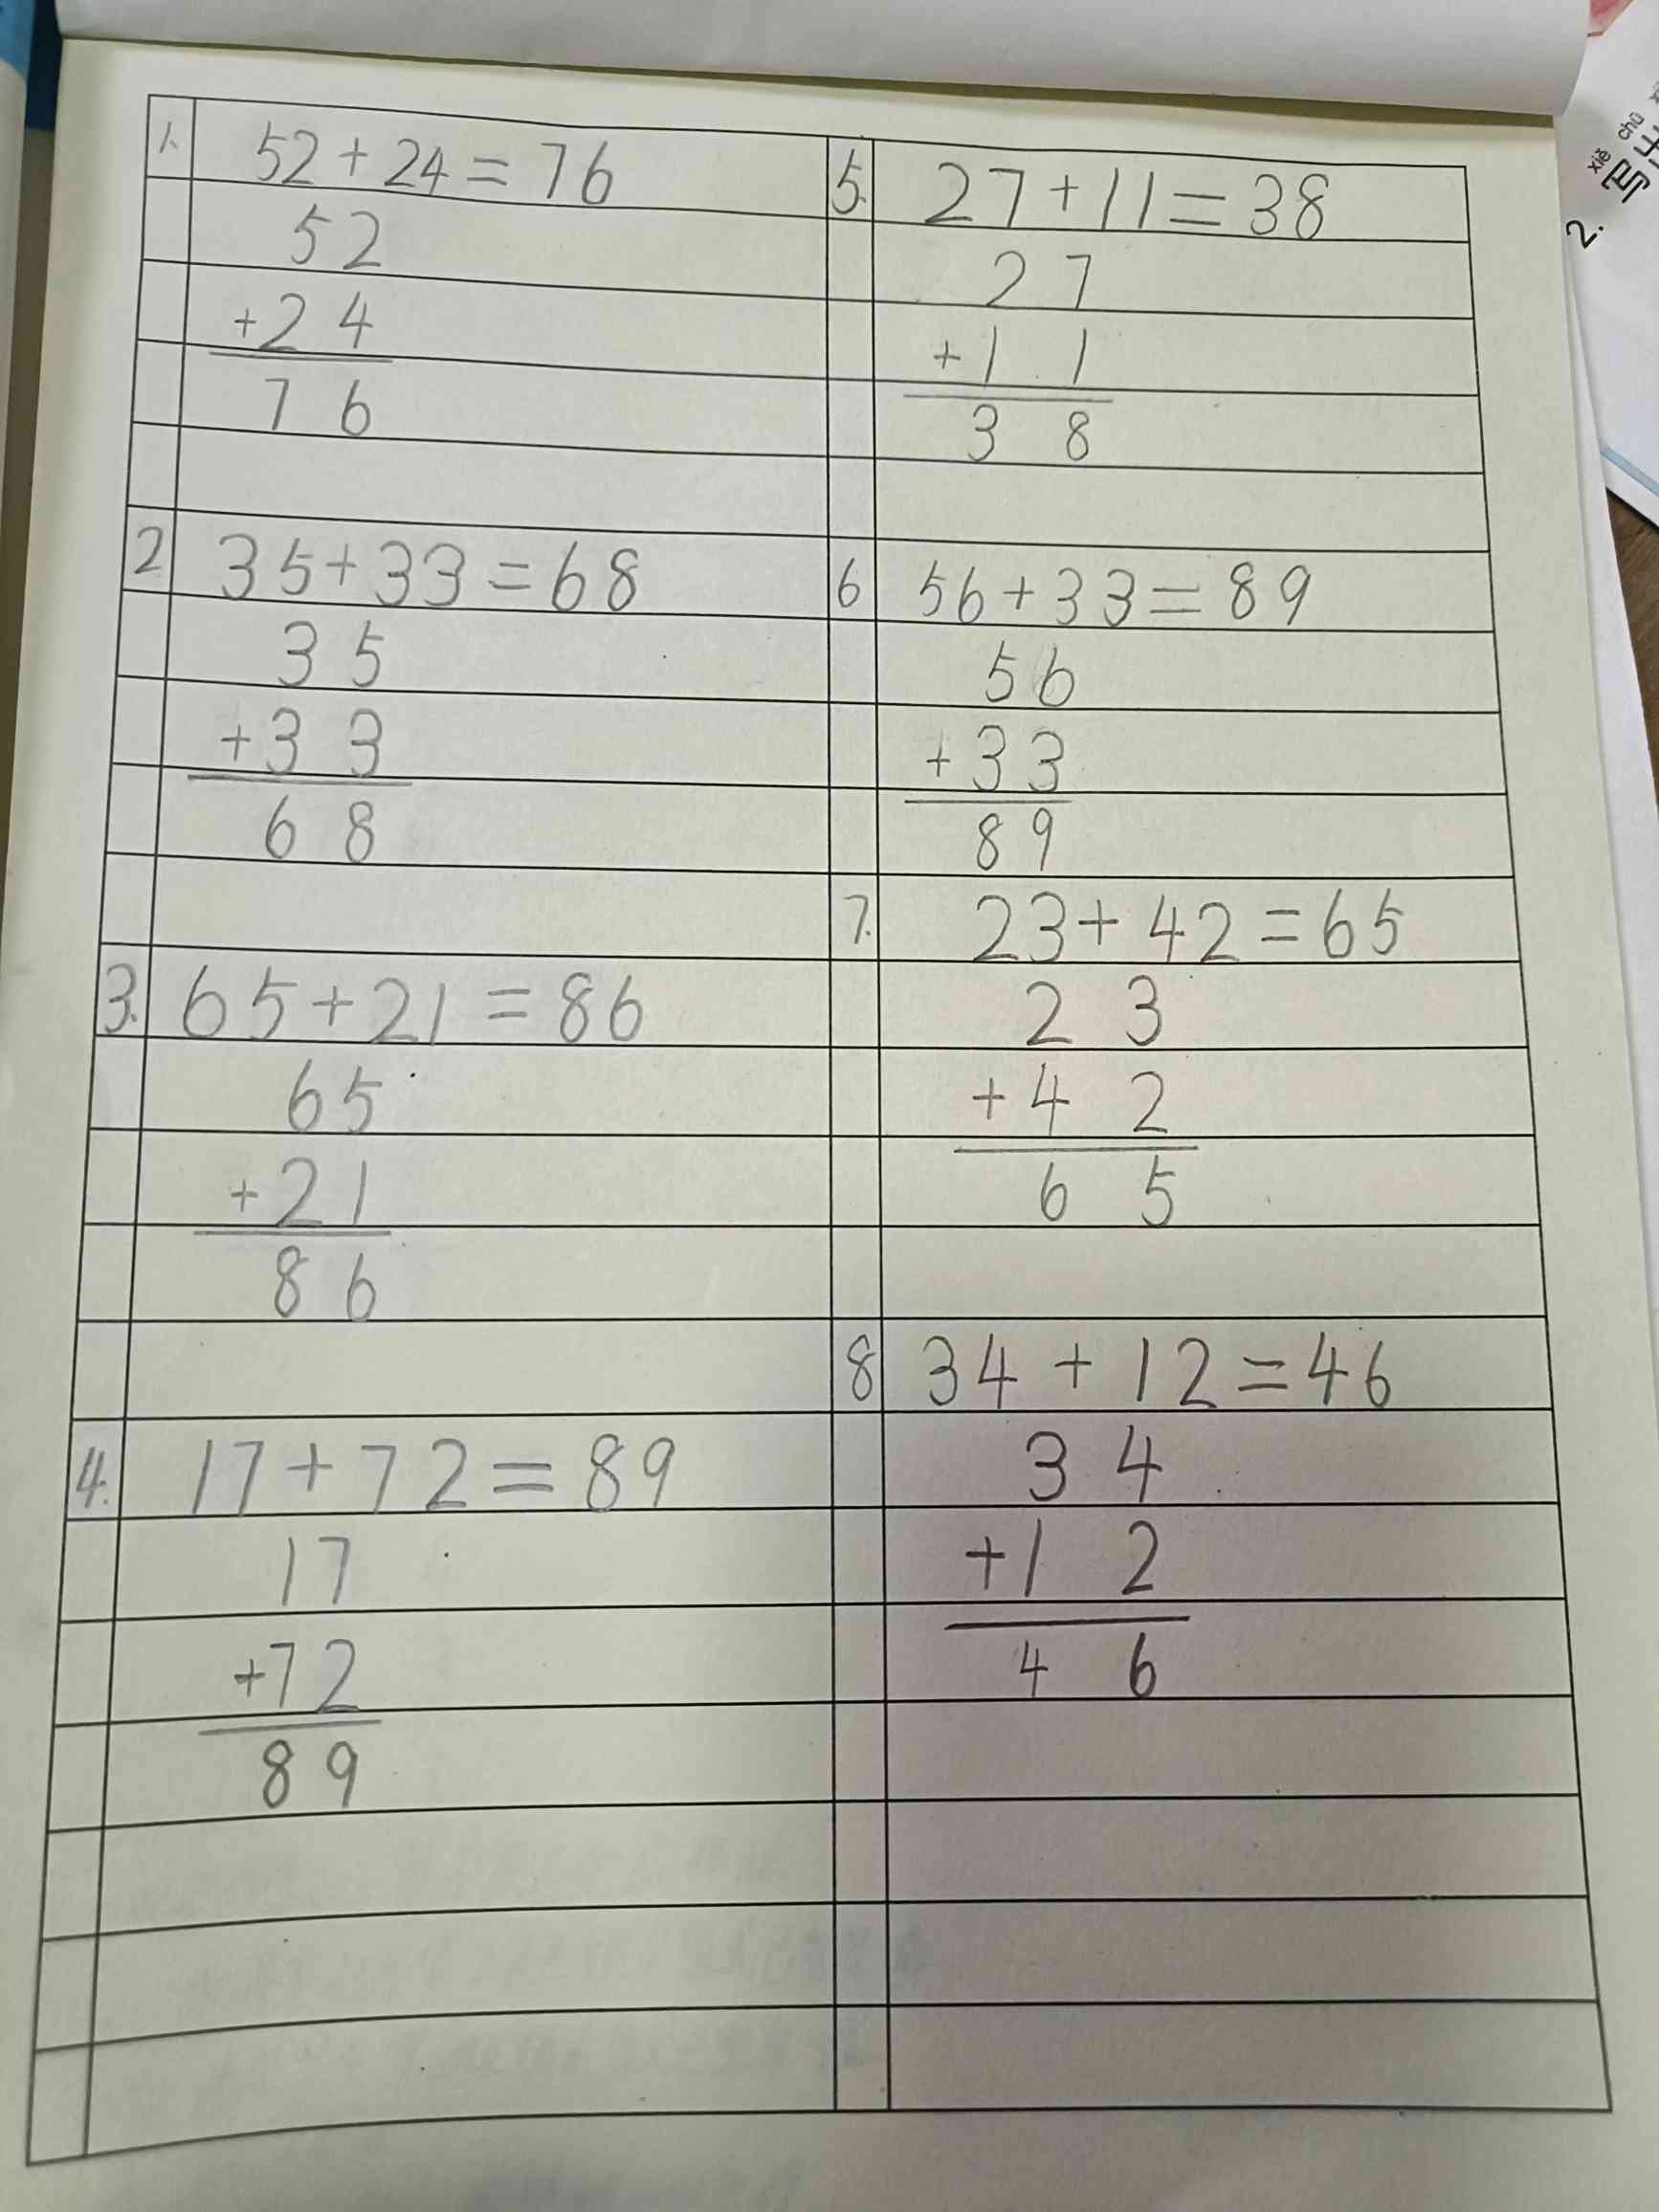 1. 52+24=76
52
+24
76
2 35+33=68
35
+33
68
3. 65+21=86
65
+21
86
4. 17+72=89
17
+72
89
5. 27+11=38
27
+11
38
6 56+33=89
56
+33
89
7. 23+42=65
23
+42
65
8 34+12=46
34
+12
46
xiě chū
2. 写